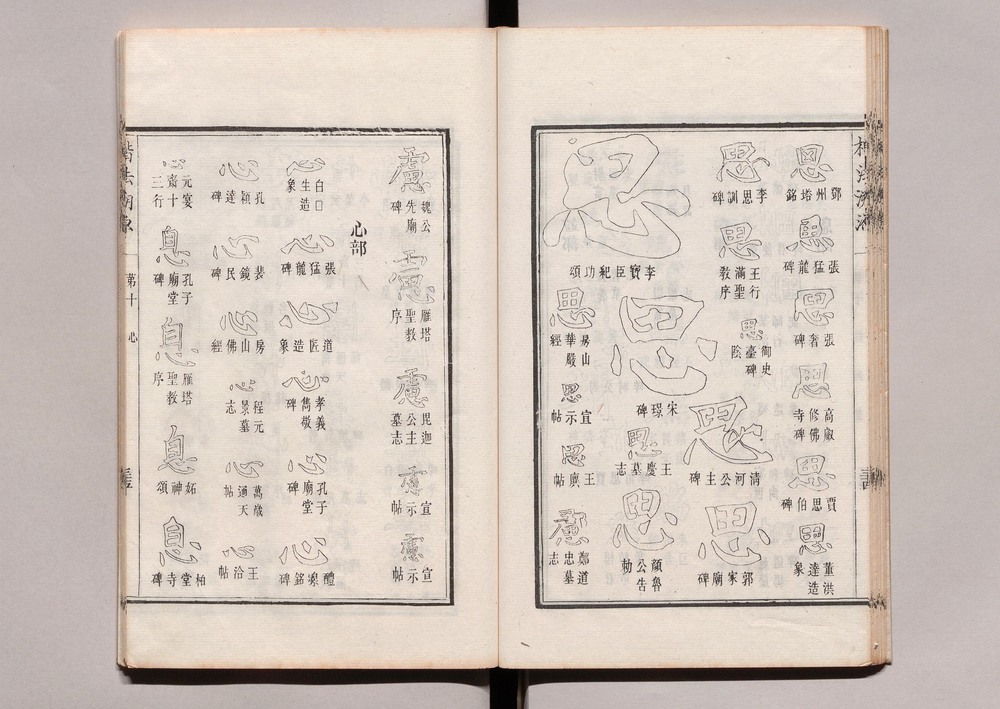 楷法溯源
思 鄧州塔銘
思 張猛龍碑
思 張奢碑
思 高叡修佛寺碑
思 賈思伯碑
思 董洪達造象
思 李思訓碑
思 王行滿聖教序
思 御史臺碑陰
思 清河公主碑
思 郭家廟碑
思 李寶臣紀功頌
思 宋璟碑
思 王慶墓志
思 顏魯公告勅
思 易山華嚴經
思 宣示帖
思 王廙帖
慮 鄭道忠墓志
慮 魏公先廟碑
慮 雁塔聖教序
慮 毘迦公主墓志
慮 宣示帖
慮 宣示帖
心部
心 白口生造象
心 張猛龍碑
心 道匠造象
心 孝義雋敬碑
心 孔子廟堂碑
心 醴泉銘碑
心 孔穎達碑
心 裴鏡民碑
心 房山佛經
心 程元景墓志
心 萬歲通天帖
心 王洽帖
心 元宴齋十三行
息 孔子廟堂碑
息 雁塔聖教序
息 妬神頌
息 柏堂寺碑
楷法溯源
第十 心